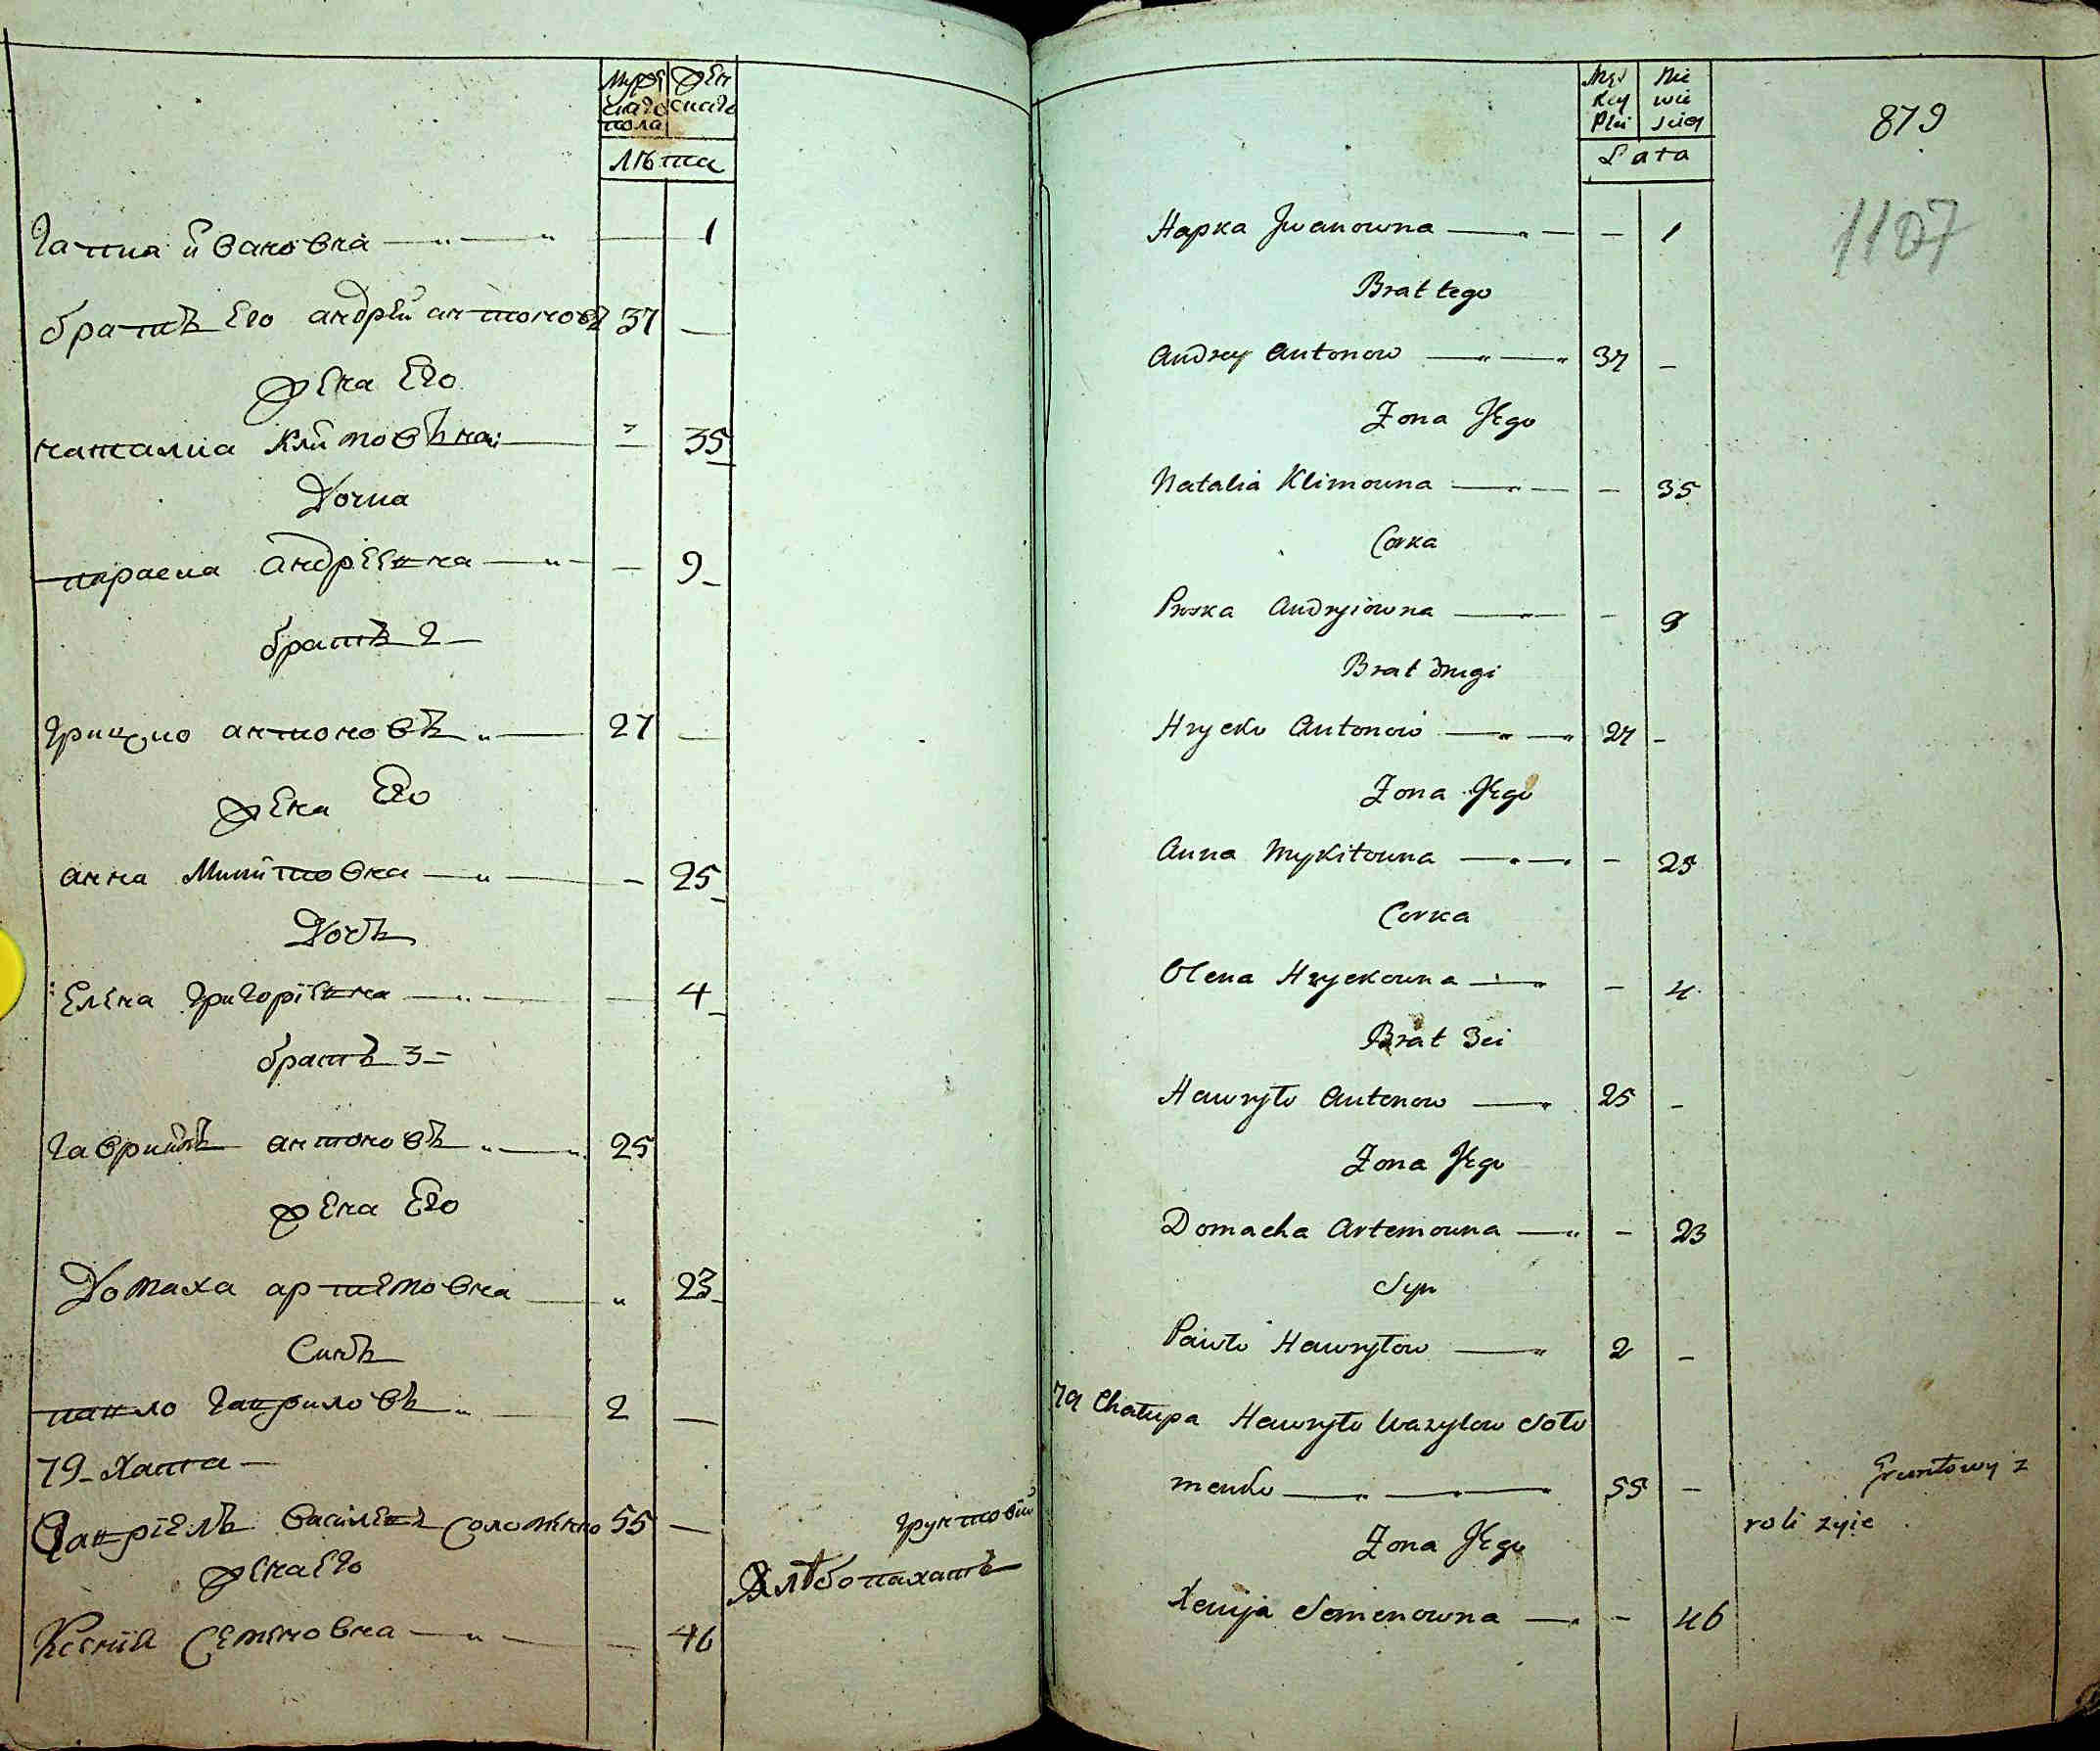 Муже
скаго
пола
Жен
скаго
Лѣта
Гапка Ивановна — 1
братъ Его андрей антоновъ 37 —
жена Его
наталиа Климовъна — 35
Дочка
параска андрѣевна — 9
братъ 2
грицко антоновъ 27 —
жена Его
анна Микитовна — 25
Дочь
Елена григорїевна — 4
братъ 3
гаврийлъ антоновъ 25
жена Его
Домаха артемовна 23
Синъ
павло гавриловъ 2 —
79 Хатта
Гаврїелъ василевъ соломенко 55 —
грунтовій
жена Его
Хлѣбопахатъ
Ксенїя Семеновна — 46
Męs
key
Płci
Nie
wie
ściey
Lata
879
1107
Hapka Jwanowna — 1
Brat tego
Andrey Antonow 37 —
Zona Jego
Natalia Klimowna — 35
Corka
Proska Andryiowna — 9
Brat drugi
Hrycko Antonow 27 —
Zona Jego
Anna Mykitowna — 25
Corka
Olena Hryckowna — 4
Brat 3ci
Hawryło Antonow 25 —
Zona Jego
Domacha Artemowna — 23
Syn
Pawło Hawryłow 2 —
79 Chałupa Hawryło Wazylow Soło
menko 55 —
Gruntowy z
roli zyie
Zona Jego
Xenija Semenowna — 46